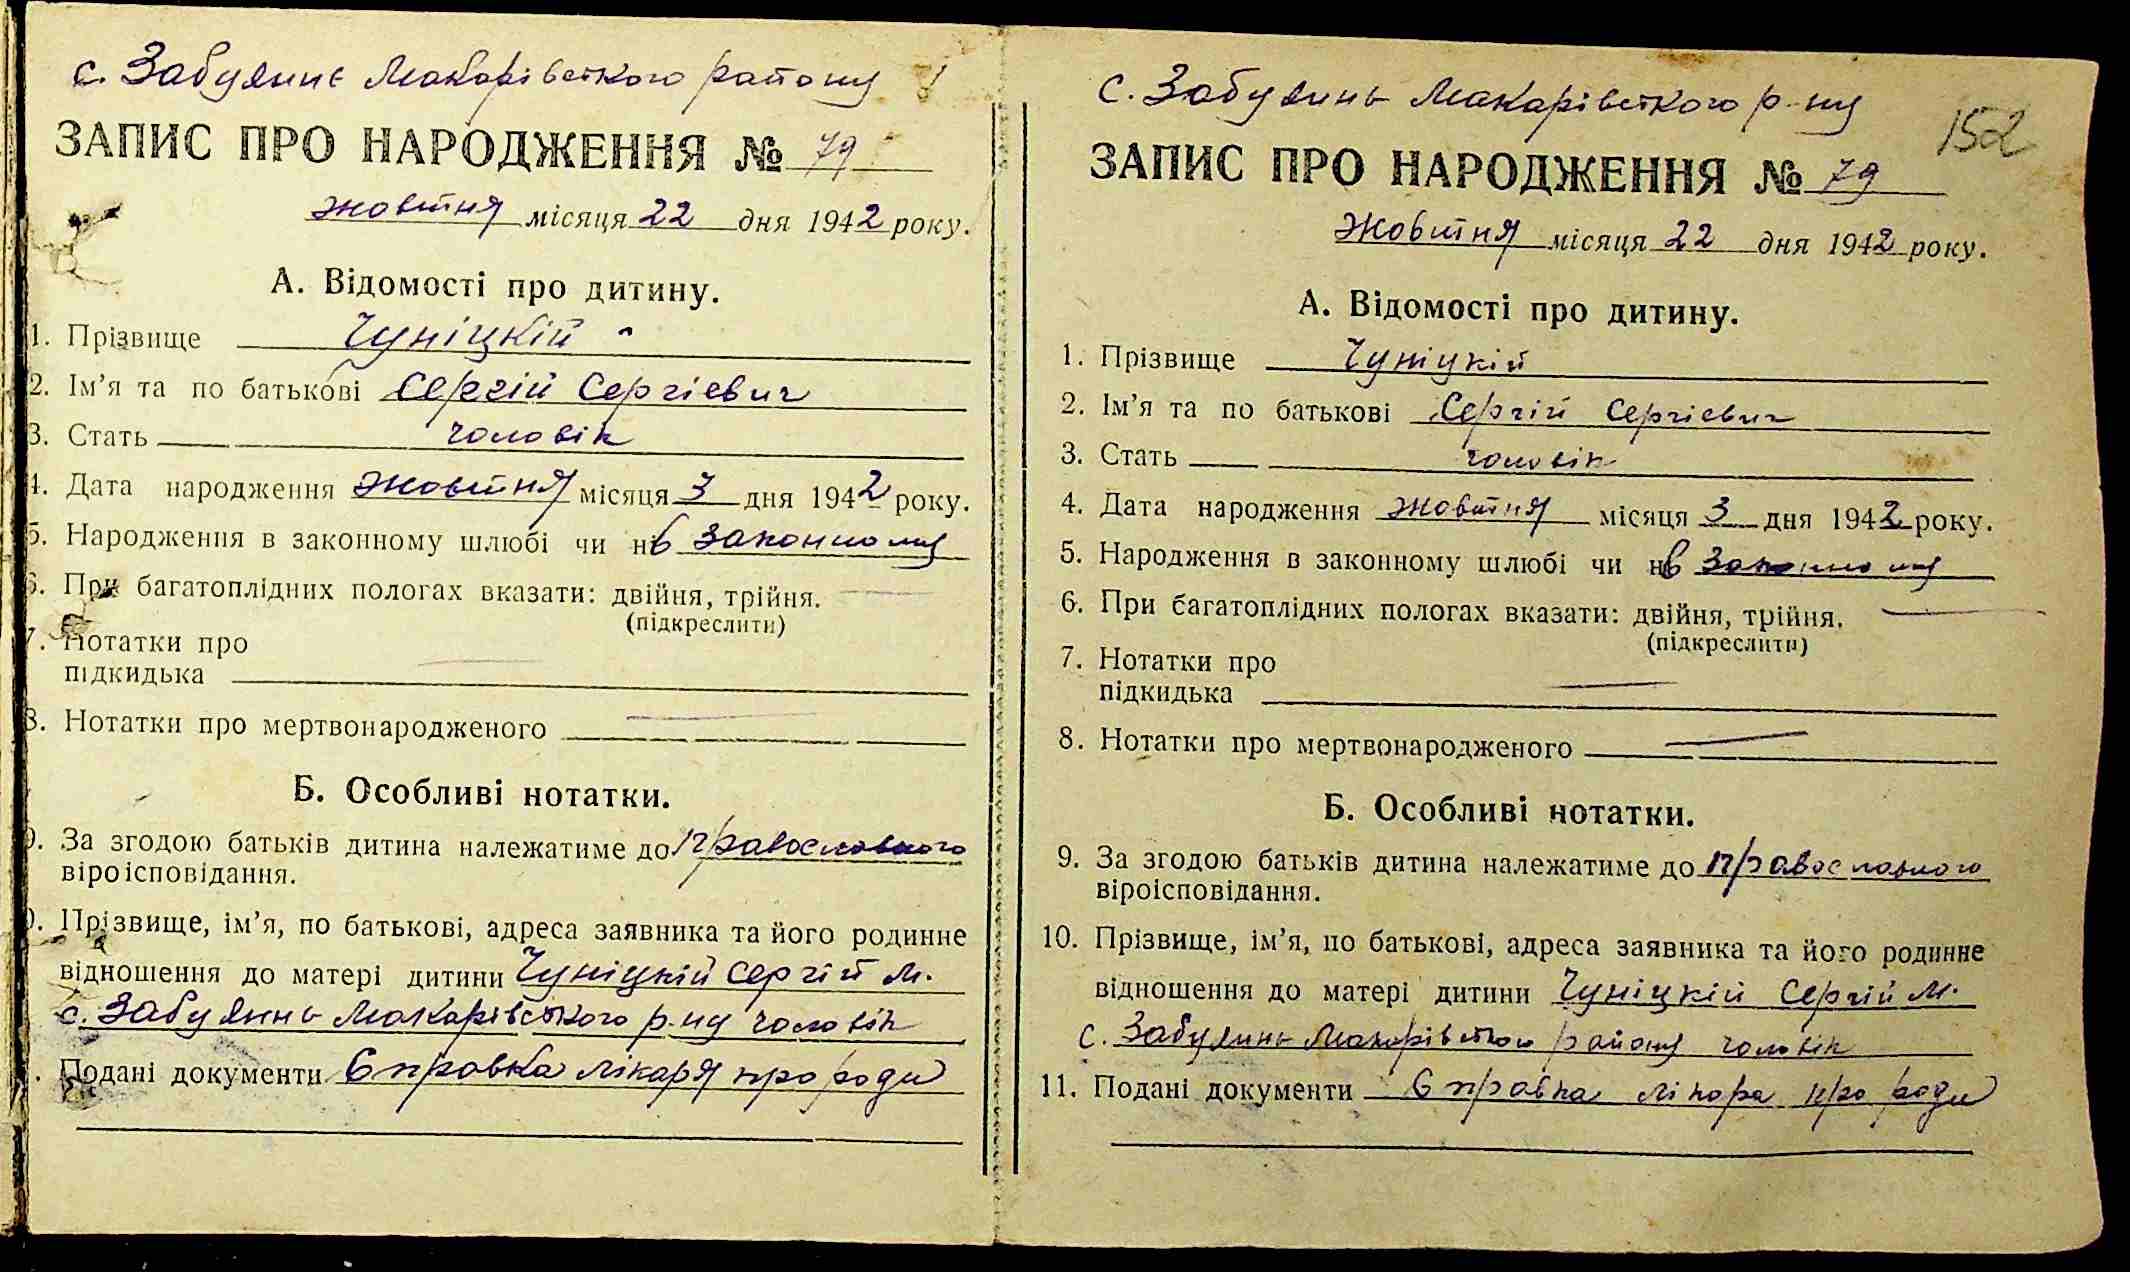 с. Забуянне Макарівського району
ЗАПИС ПРО НАРОДЖЕННЯ № 79
жовтня місяця 22 дня 1942 року.
А. Відомості про дитину.
1. Прізвище Чуніцкій
2. Ім’я та по батькові Сергій Сергієвич
3. Стать чоловік
4. Дата народження жовтня місяця 3 дня 1942 року.
5. Народження в законному шлюбі чи в законному
6. При багатоплідних пологах вказати: двійня, трійня.
(підкреслити)
7. Нотатки про
підкидька
8. Нотатки про мертвонародженого
Б. Особливі нотатки.
9. За згодою батьків дитина належатиме до православного
віроісповідання.
0. Прізвище, ім’я, по батькові, адреса заявника та його родинне
відношення до матері дитини Чуніцкій Сергій М.
с. Забуяннь Макарівського р-ну чоловік
. Подані документи Справка лікаря про роди
с. Забуяннь Макарівського р-ну
152
ЗАПИС ПРО НАРОДЖЕННЯ № 79
Жовтня місяця 22 дня 1942 року.
А. Відомості про дитину.
1. Прізвище Чуніцкій
2. Ім’я та по батькові Сергій Сергієвич
3. Стать чоловік
4. Дата народження жовтня місяця 3 дня 1942 року.
5. Народження в законному шлюбі чи в законному
6. При багатоплідних пологах вказати: двійня, трійня.
(підкреслити)
7. Нотатки про
підкидька
8. Нотатки про мертвонародженого
Б. Особливі нотатки.
9. За згодою батьків дитина належатиме до православного
віроісповідання.
10. Прізвище, ім’я, по батькові, адреса заявника та його родинне
відношення до матері дитини Чуніцкій Сергій М.
с. Забуяннь Макарівського району чоловік
11. Подані документи Справка лікара про роди